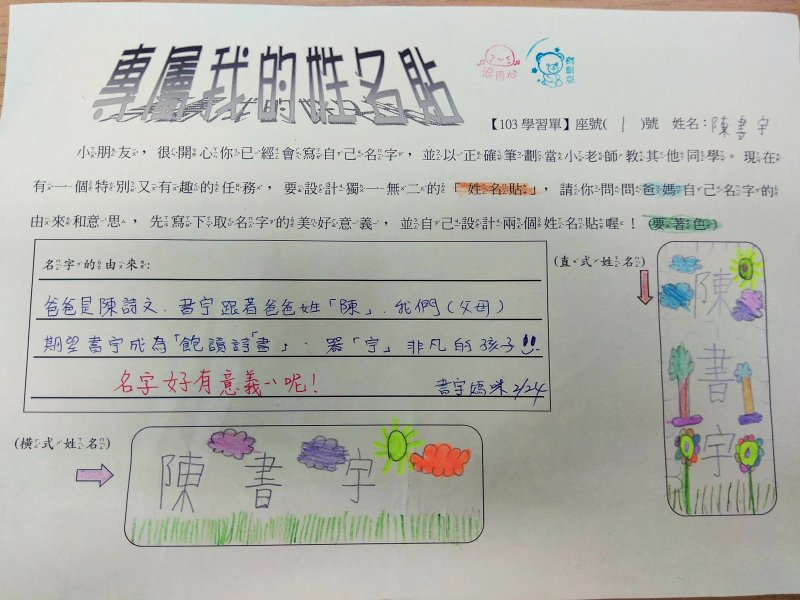 專屬我的姓名貼
很用心
【103 學習單】座號( 1 )號 姓名:陳書宇
小朋友，很開心你已經會寫自己名字，並以正確筆劃當小老師教其他同學。現在
有一個特別又有趣的任務，要設計獨一無二的「姓名貼」，請你問問爸媽自己名字的
由來和意思，先寫下取名字的美好意義，並自己設計兩個姓名貼喔！(要著色)
名字的由來:
爸爸是陳詩文．書宇跟著爸爸姓「陳」．我們(父母)
期望書宇成為「飽讀詩書」、器「宇」非凡的孩子!!
名字好有意義ㄋ呢!
書宇媽咪 2/24
(直式姓名)
陳
書
宇
(橫式姓名)
陳書宇